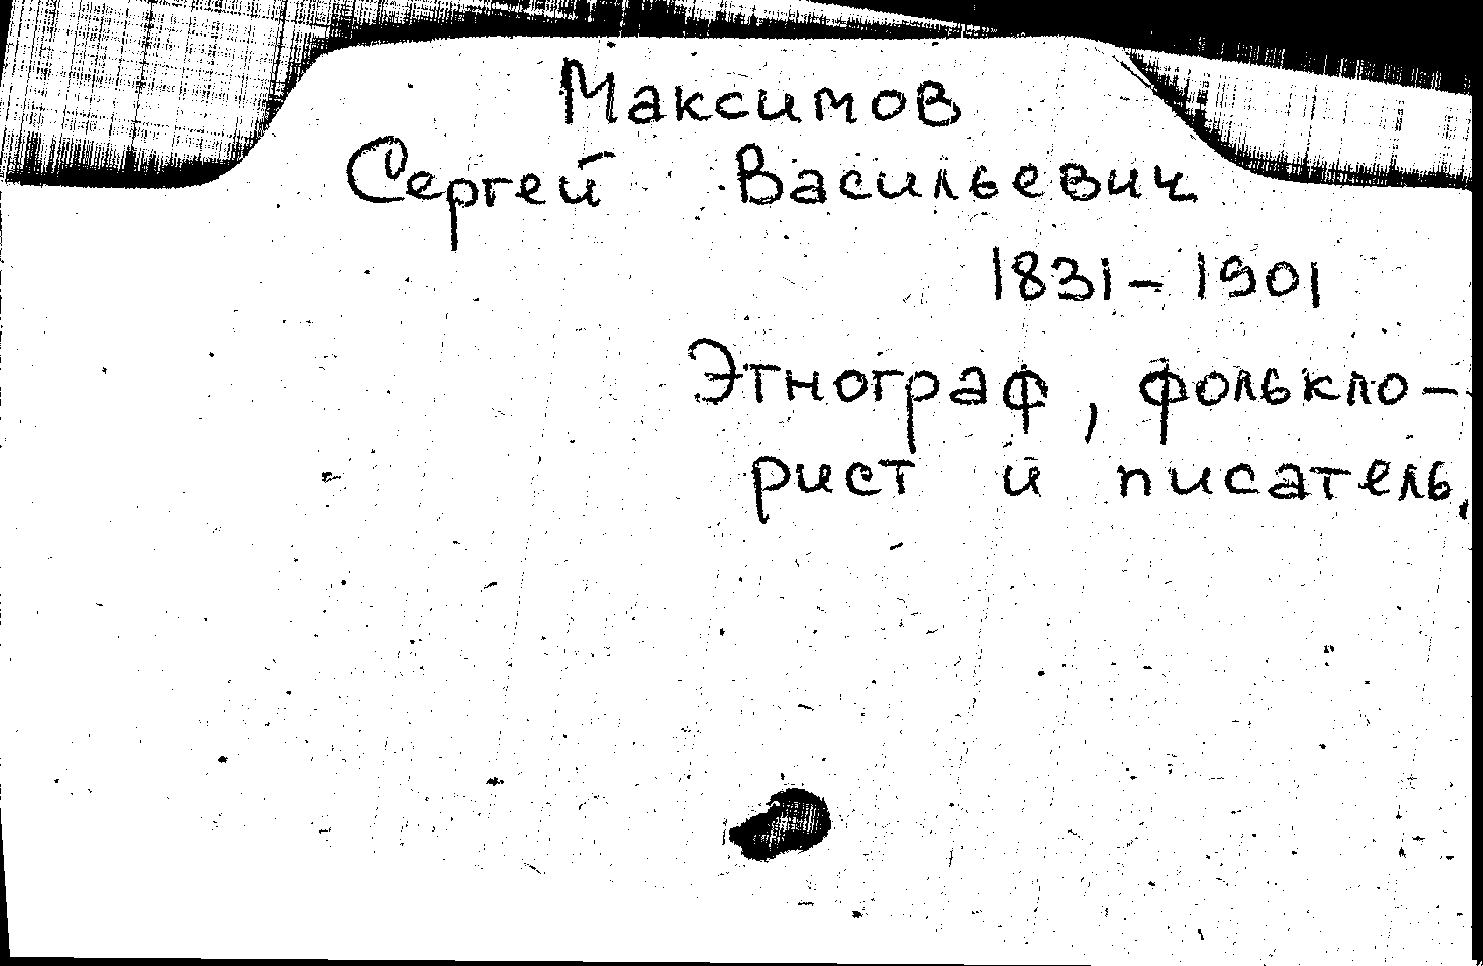 Максимов
Сергей Васильевич
1831-1901
Этнограф, фолькло-
рист и писатель.